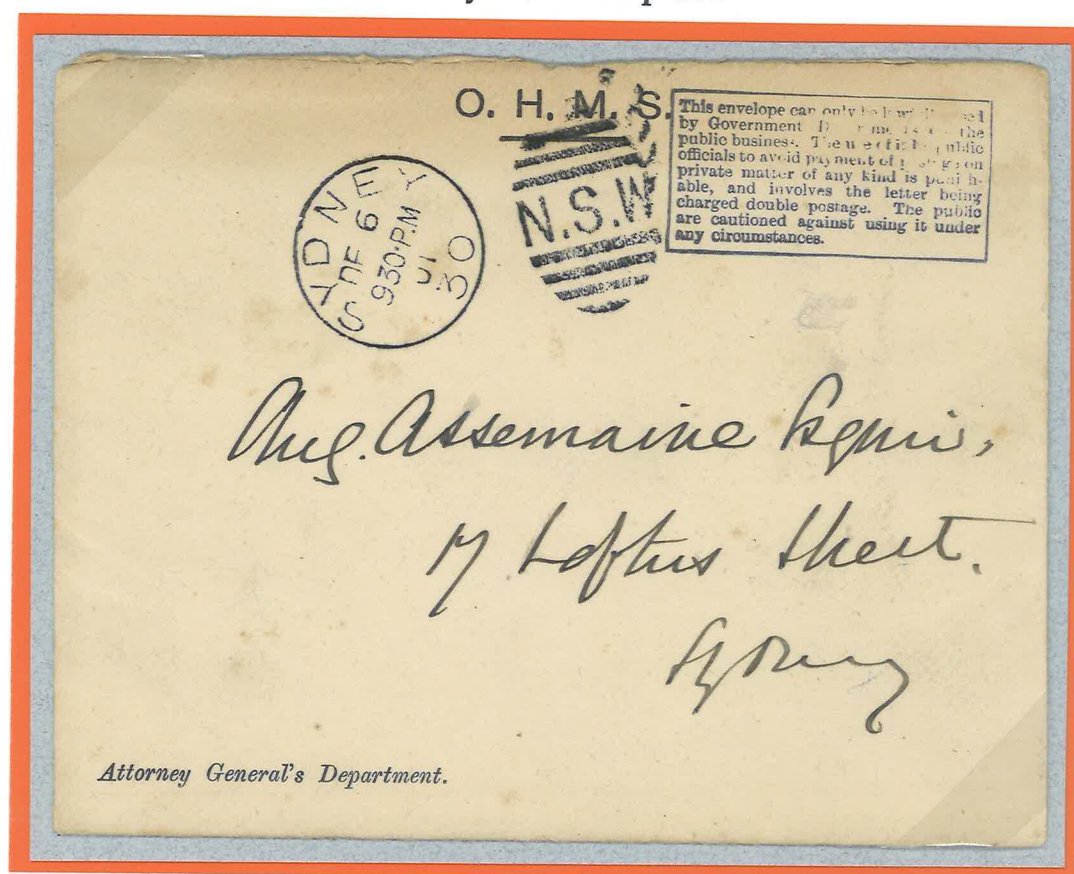 O. H. M. S.
This envelope can only be
by Government the
public business. The public
officials to avoid payment of on
private matter of any kind is punish-
able, and involves the letter being
charged double postage. The public
are cautioned against using it under
any circumstances.
SYDNEY
DE 6
930·P.M
01
30
N.S.W
Aug. Assemaine Esquire,
17 Loftus Street.
Sydney
Attorney General's Department.